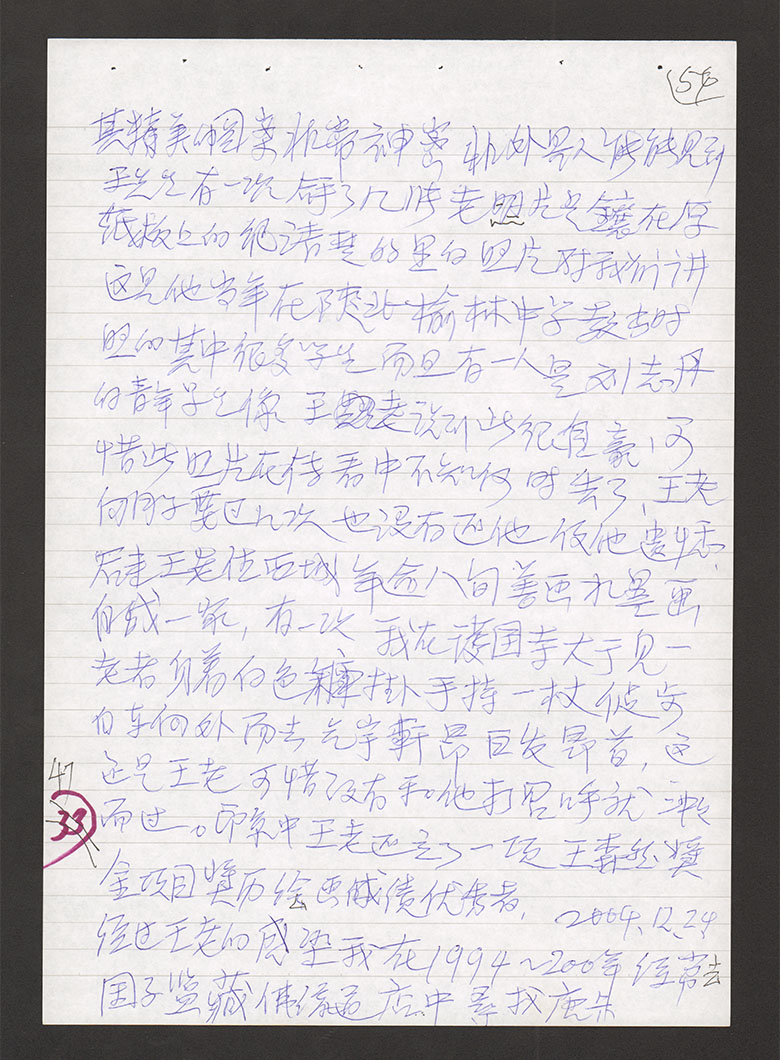 150
其精美的图案非常神奇 机外是人
王先生有一次 拿了几张老照片是镶在厚
纸板上的很清楚的黑白照片对我们讲
这是他当年在陕北榆林中学教书时
照的其中很多学生而且有一人是刘志丹
的青年学生像 王老说到此很自豪,可
惜此照片在传看中不知何时丢了,王老
向 要过几次也没有还他 使他遗憾,
后来王老住西城 年愈八旬善画水墨画
自成一家,有一次 我在护国寺大 见一
老者身着白色 挂手持一杖 从
自 向外而去气宇轩昂白发昂首,这
还是王老可惜没有和他打召呼就
而过。印象中王老还立了一项王森然奖
金项目奖历绘画成绩优秀者,
2004.12.24
经过王老的感染我在1994~200年经常去
国子监藏佛 店中寻找唐朱
47
33